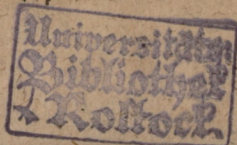 Universitäts
Bibliothek
Rostock